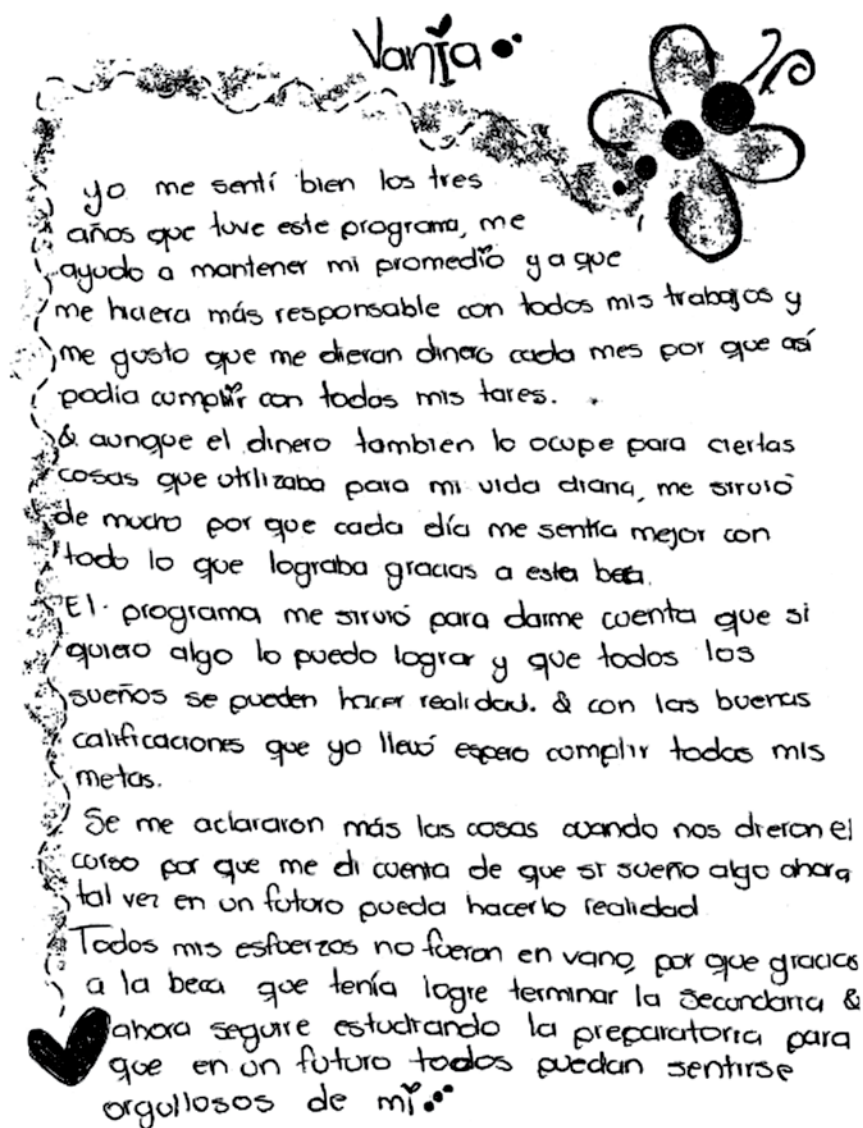 Vania
yo me sentí bien los tres
años que tuve este programa, me
ayudo a mantener mi promedio y a que
me hiciera más responsable con todos mis trabajos y
me gusto que me dieran dinero cada mes por que así
podia cumplir con todas mis tares.
& aunque el dinero tambien lo ocupe para ciertas
cosas que utilizaba para mi vida diaria, me sirvió
de mucho por que cada día me sentía mejor con
todo lo que lograba gracias a esta beca.
El programa me sirvió para darme cuenta que si
quiero algo lo puedo lograr y que todos los
sueños se pueden hacer realidad. & con las buenas
calificaciones que yo llevó espero complir todas mis
metas.
Se me aclararon más las cosas cuando nos dieron el
curso por que me di cuenta de que si sueño algo ahora
tal vez en un futuro pueda hacerlo realidad
Todos mis esfuerzos no fueron en vano, por que gracias
a la beca que tenía logre terminar la Secundaria &
ahora seguire estudiando la preparatoria para
que en un futuro todos puedan sentirse
orgullosos de mi...